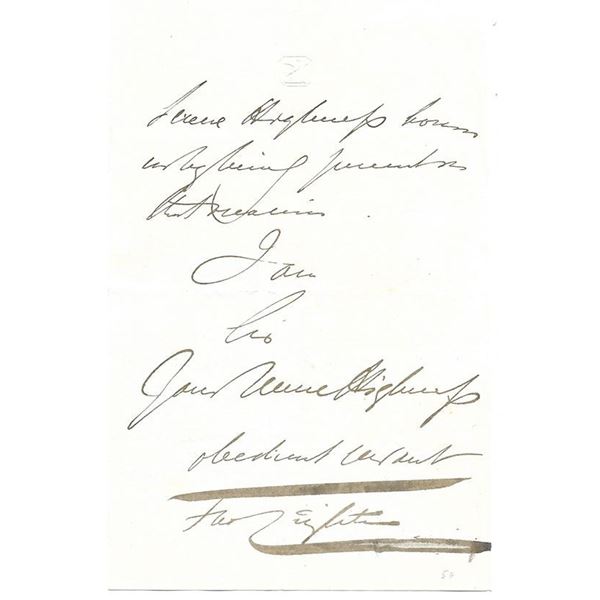 Serene Highness honor
us by being present on
that occasion.
I am
Sir
Your Serene Highness
obedient servant
Fred Leighton
50